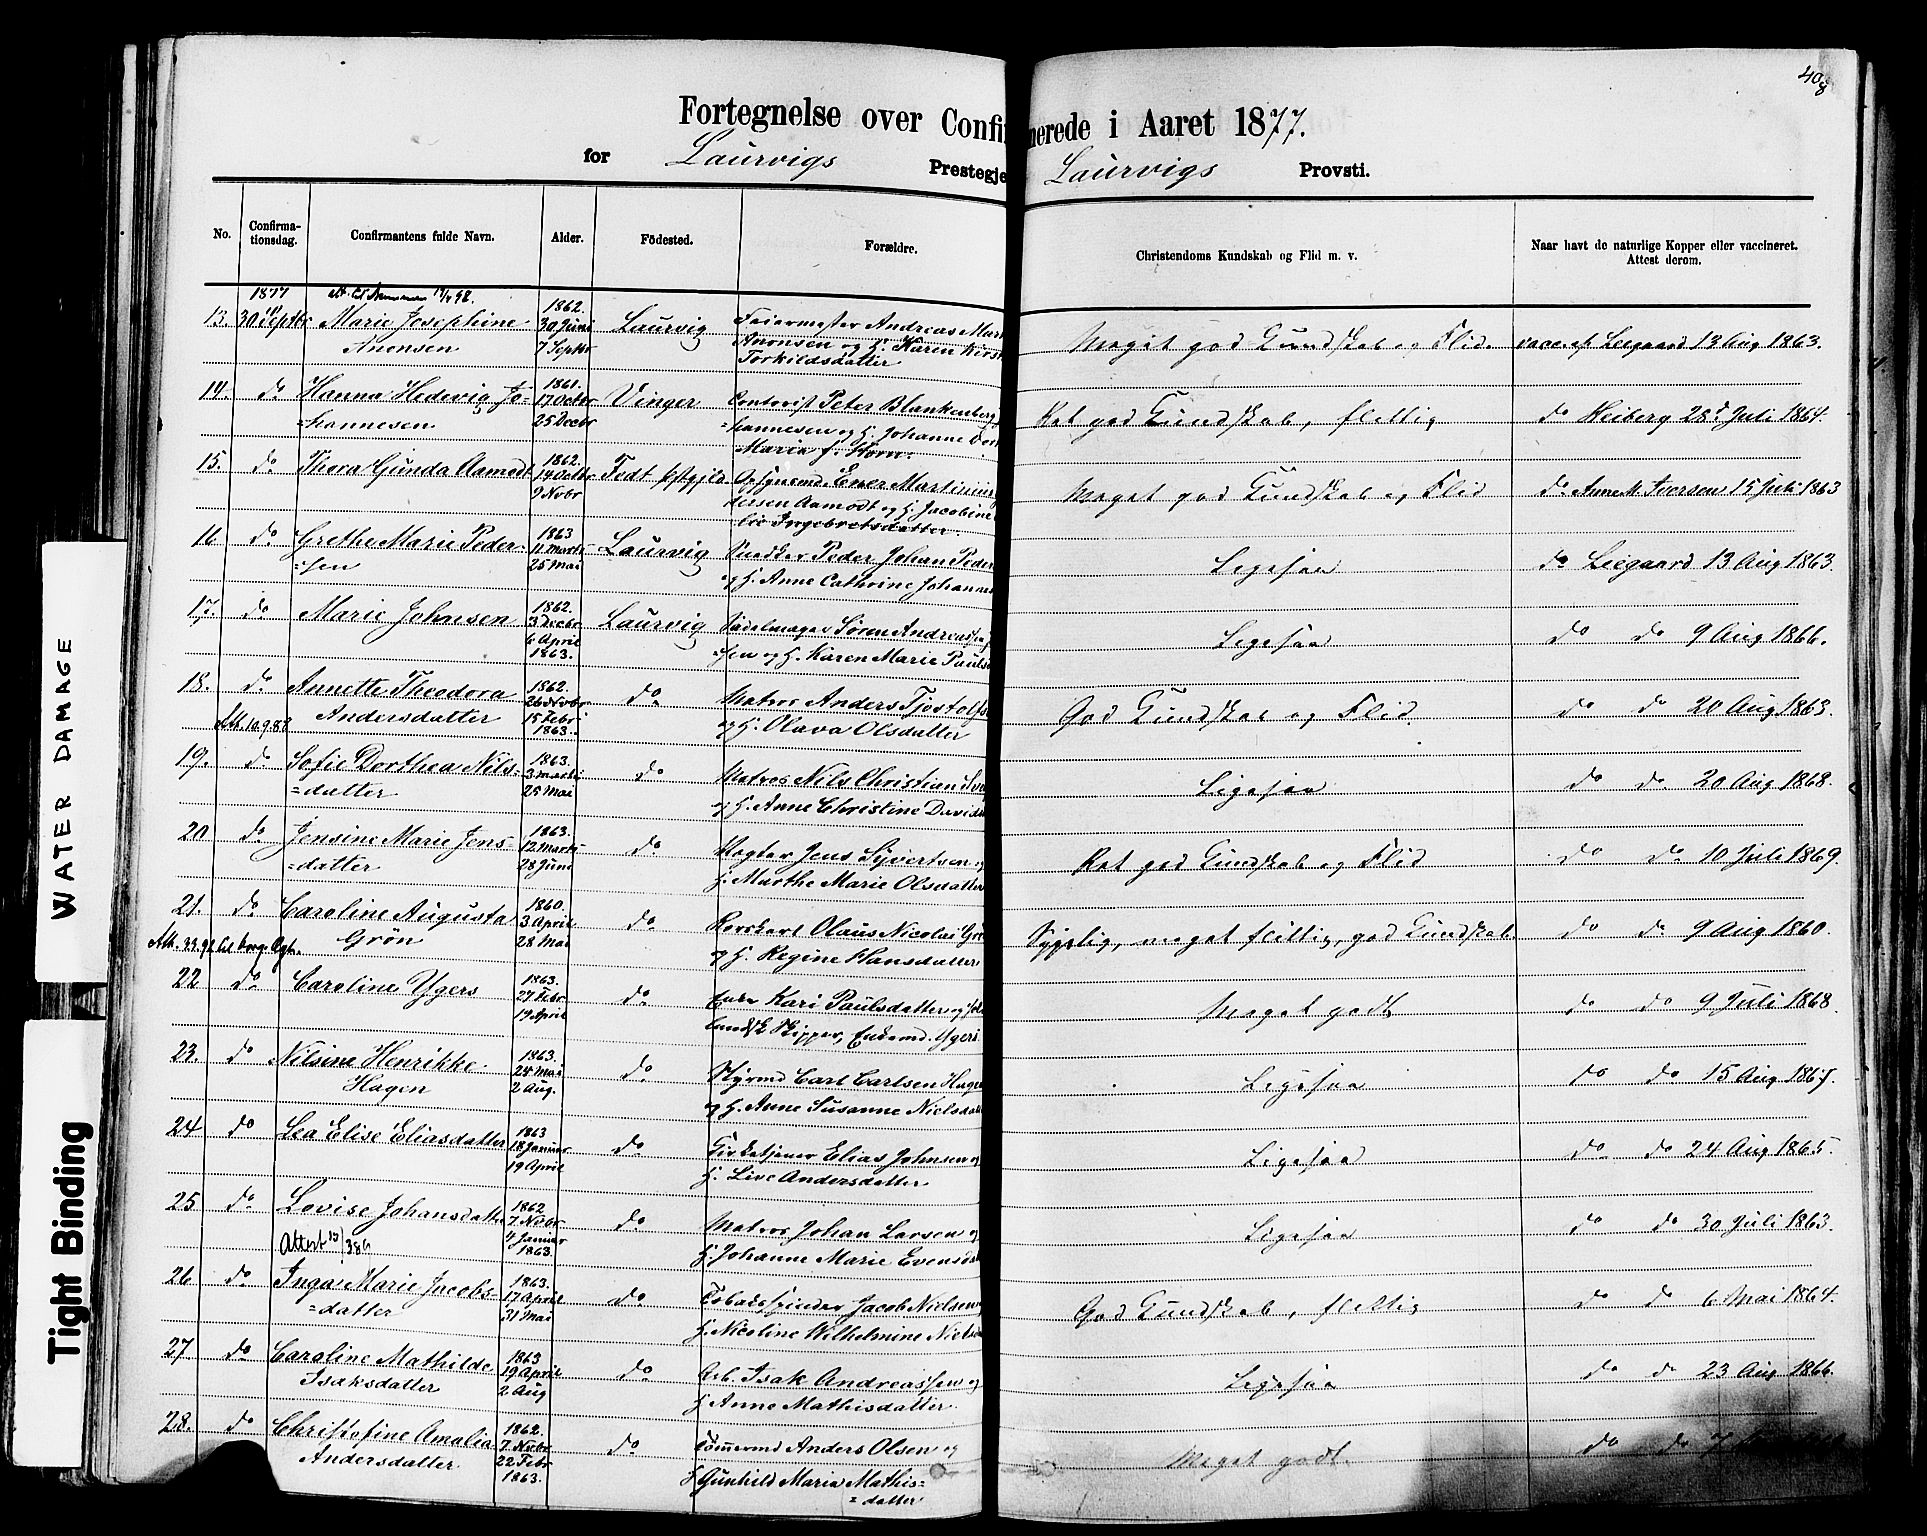 408
Fortegnelse over Confir
merede i Aaret 1877.
for Laurvigs Prestegje
Laurvigs Provsti.
No. Confirma-tionsdag. Confirmantens fulde Navn. Alder. Födested. Forældre. Christendoms Kundskab og Flid m. v. Naar havt de naturlige Kopper eller vaccineret. Attest derom.
1877
13. 30 Septbr Marie Josephine 1862. 30 Juni Laurvig Feiermester Andreas Mart
Anonsen 7 Septbr Anonsen og H. Karen Kirst
Torkildsdatter
Meget god Kundskab og Flid. vacc. af Leegaard 13 Aug 1863.
14. do Hanna Hedevig Jo= 1861. 17 Octbr Vinger Contorist Peter Blankenberg
=hannesen 25 Decbr =hannesen og H. Johanne
Maria f. Horn.
Ret god Kundskab, flittig do Heiberg 28d Juli 1864.
15. do Thora Gunda Aamodt 1862. 14 Octbr Todt Prstgjld Opsynsmd Ener Martinius
9 Novbr dersen Aamodt og H. Jacobine
Ingebretsdatter.
Meget god Kundskab og Flid do Anne M. Iversen 15 Juli 1863
16. do Grethe Marie Peder= 1863 11 Marts Laurvig Snedker Peder Johan Peder
=sen 25 Mai og H. Anne Cathrine Johannes
Ligesaa do Leegaard 13 Aug 1863.
17. do Marie Johnsen 1862. 3 Decbr Laurvig Sadelmager Søren Andreas
6 April 1863. =sen og H. Karen Marie Pauls
Ligesaa do do 9 Aug 1866.
18. do Annette Theodora 1862. 26 Novbr do Matros Anders Tjostolfs
Att. 10.9.88 Andersdatter 15 Febr 1863. og H. Olava Olsdatter
God Kundskab og Flid. do do 20 Aug 1863.
19. do Sofie Dorthea Nils= 1863. 3 Marts do Matros Nils Christian
=datter 25 Mai og H. Anne Christine Davids
Ligesaa do do 20 Aug 1868.
20 do Jensine Marie Jens= 1863. 12 Marts do Vægter Jens Syvertsen og
=datter 28 Juni H. Marthe Marie Olsdatter
Ret god Kundskab og Flid do do 10 Juli 1869.
21. do Caroline Augusta 1860. 3 April do Olaus Nicolai Grø
Grøn 28 Mai og H. Regine Hansdatter
Sygelig, meget flittig, god Kundskab. do do 9 Aug 1860.
22 do Caroline Ygers 1863. 27 Febr 19 April do Enke Kari Paulsdatter og
Skipper, Enkemd. Ygers
Meget godt do do 9 Juli 1868.
23. do Nilsine Henrikke 1863. 24 Mai do Styrmd Carl Carlsen Hagen
Hagen 2 Aug. og H. Anne Susanne Nielsdat
Ligesaa do do 15 Aug 1867.
24 do Lea Elise Eliasdatter 1863 18 Januar 19 April do Kirketjener Elias Johnsen og
H. Live Andersdatter
Ligesaa do do 24 Aug 1865.
25 do Lovise Johansdatter 1862 7 Novbr 4 Januar 1863. do Matros Johan Larsen og
H. Johanne Marie Evensdat
Ligesaa do do 30 Juli 1863.
26 do Inga Marie Jacobs= 1863. 17 April do Tobaksspinder Jacob Nielsen og
=datter 31 Mai H. Nicoline Wilhelmine Niels
God Kundskab, flittig do do 6 Mai 1864.
27 do Caroline Mathilde 1863 19 April do Arb. Isak Andreassen og
Isaksdatter 2 Aug H. Anne Mathisdatter
Ligesaa do do 23 Aug 1866.
28. do Christofine Amalia 1862. 7 Novbr do Tømermd Anders Olsen og
Andersdatter 22 Febr 1863. H Gunhild Maria Mathis=
=datter
Meget godt. do do 7
WATER DAMAGE
Tight Binding